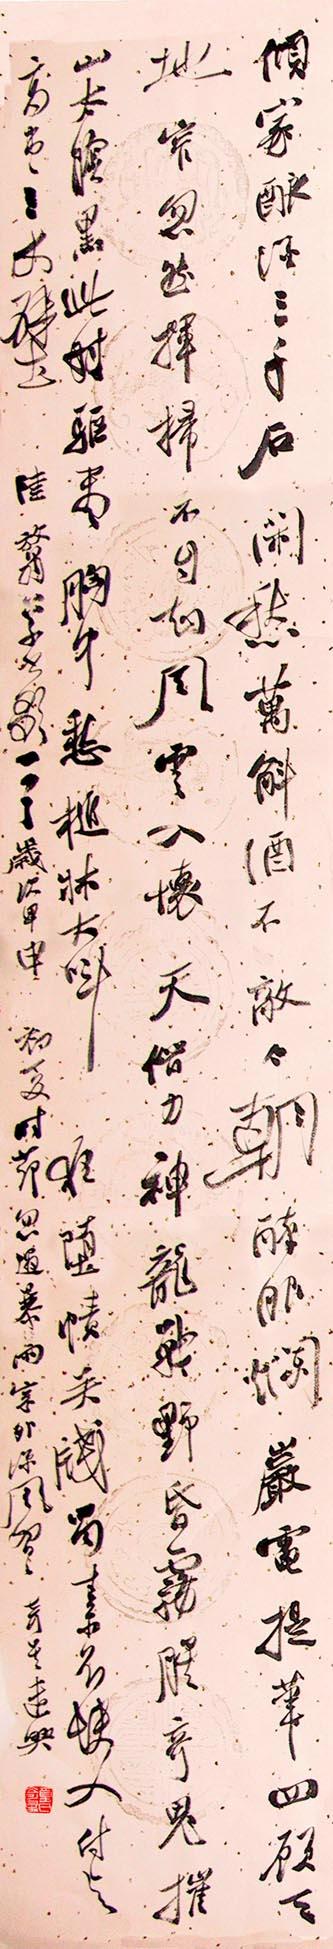 傾家釀酒三千石閑愁萬斛酒不敵今朝醉眼爛巖電提筆四顧天
地窄忽然揮掃不自知風雲入懷天借力神龍戰野昏霧腥奇鬼摧
山太陰黑此時驅盡胸中愁搥牀大叫狂墮幘吳牋蜀素不快人付與
高堂三丈壁 陸放翁草書歌一首 歲次甲申 初夏時節忽遇暴雨室外添風